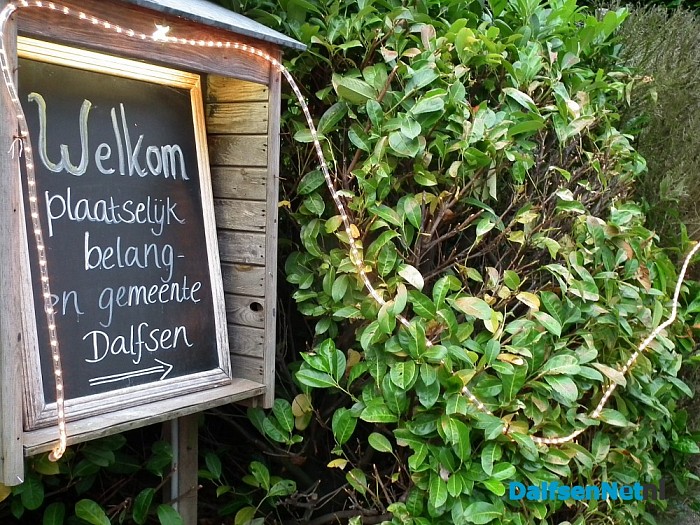 Welkom
plaatselijk
belang-
en gemeente
Dalfsen
DalfsenNet.nl